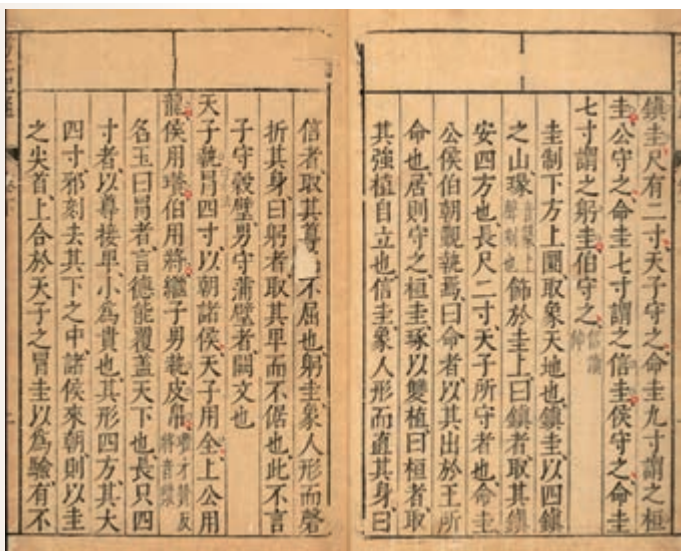 鎮圭尺有二寸天子守之命圭九寸謂之桓
圭公守之命圭七寸謂之信圭侯守之命圭
七寸謂之躬圭伯守之信讀伸
圭制下方上圓取象天地也鎮圭以四鎮
之山瑑音篆上聲刻也飾於圭上曰鎮者取其鎮
安四方也長尺二寸天子所守者也命圭
公侯伯朝覲執焉曰命者以其出於王所
命也居則守之桓圭琢以雙植曰桓者取
其強植自立也信圭象人形而直其身曰
信者取其尊不屈也躬圭象人形而磬
折其身曰躬者取其卑而不倨也此不言
子守穀璧男守蒲璧者闕文也
天子執冒四寸以朝諸侯天子用全上公用
龍侯用瓚伯用將繼子男執皮帛
名玉曰冒者言德能覆蓋天下也長只四
寸者以尊接卑小為貴也其形四方其大
四寸邪刻去其下之中諸侯來朝則以圭
之尖首上合於天子之冒圭以為驗有不